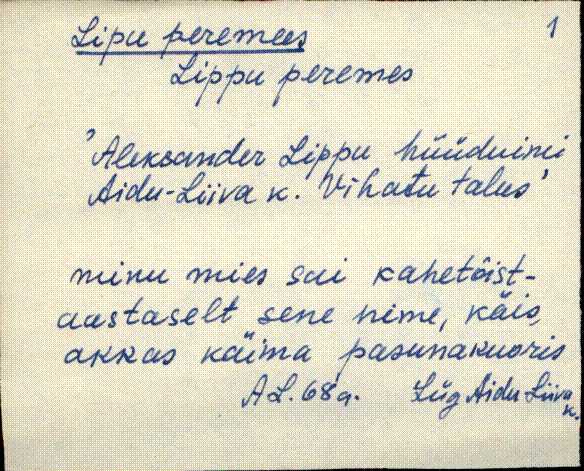 1
Lipu peremees
Lippu peremes
'Aleksander Lippu hüüdnimi
Aidu-Liiva k. Vihatu talus'
minu mies sai kahetõist-
aastaselt sene nime, käis,
akkas käima pasunakuoris
AL. 68a. Lüg Aidu-Liiva
k.